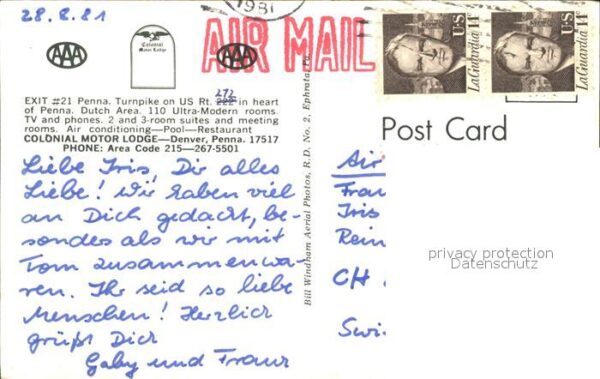 28.8.81
1981
AIR MAIL
AAA
Colonial
Motor Lodge
AAA
U.S
LaGuardia 14c
U.S
LaGuardia 14c
EXIT #21 Penna. Turnpike on US Rt. 222 272 in heart
of Penna. Dutch Area. 110 Ultra-Modern rooms.
TV and phones. 2 and 3-room suites and meeting
rooms. Air conditioning—Pool—Restaurant
COLONIAL MOTOR LODGE—Denver, Penna. 17517
PHONE: Area Code 215—267-5501
Liebe Iris, Dir alles
Liebe! Wir haben viel
an Dich gedacht, be-
sonders als wir mit
Tom zusammenwa-
ren. Ihr seid so liebe
Menschen! Herzlich
grüßt Dich
Gaby und Franz
Bill Windham Aerial Photos, R.D. No. 2, Ephrata, Pa.
Post Card
Air
Frau
Iris
Rein
CH
Swi
privacy protection
Datenschutz